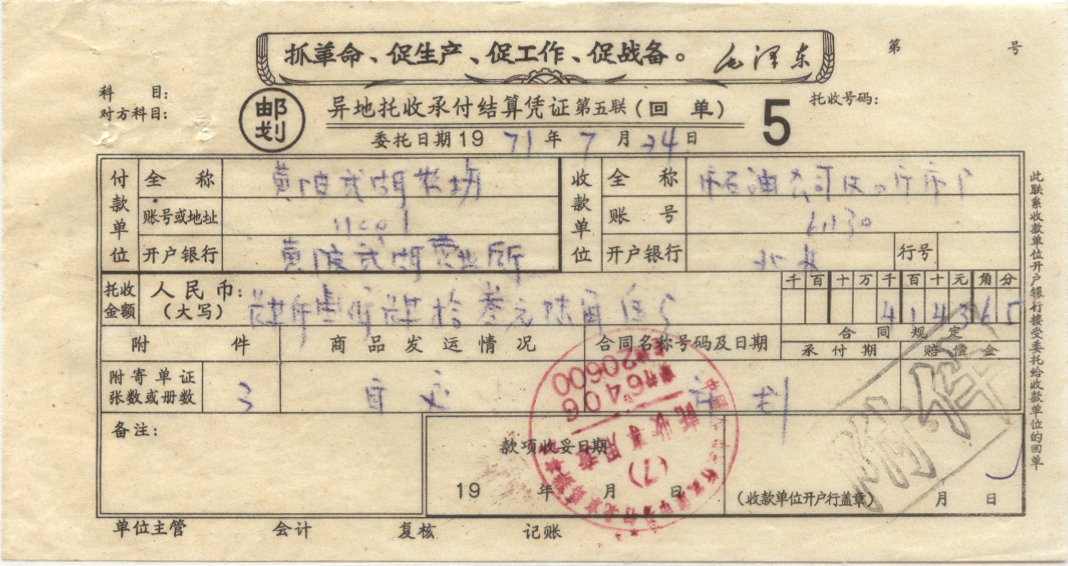 抓革命、促生产、促工作、促战备。 毛泽东
第 号
科 目：
对方科目：
邮划
异地托收承付结算凭证 第五联（回单）
5
托收号码：
委托日期 19 71 年 7 月 24 日
付款单位
全 称 黄陂武湖农场
账号或地址 11001
开户银行 黄陂武湖营业所
收款单位
全 称 市石油公司
账 号 61130
开户银行
行号
托收金额
人民币：
（大写） 肆仟壹佰肆拾叁元陆角伍分
千 百 十 万 千 百 十 元 角 分
4 1 4 3 6 5
附 件
商品发运情况
合同名称号码及日期
合同规定
承付期
赔偿金
附寄单证
张数或册数
3
备注：
款项收妥日期
19 年 月 日
（收款单位开户行盖章） 月 日
6406
20600
托收专用章
(7)
此联系收款单位开户银行接受委托给收款单位的回单
单位主管 会计 复核 记账